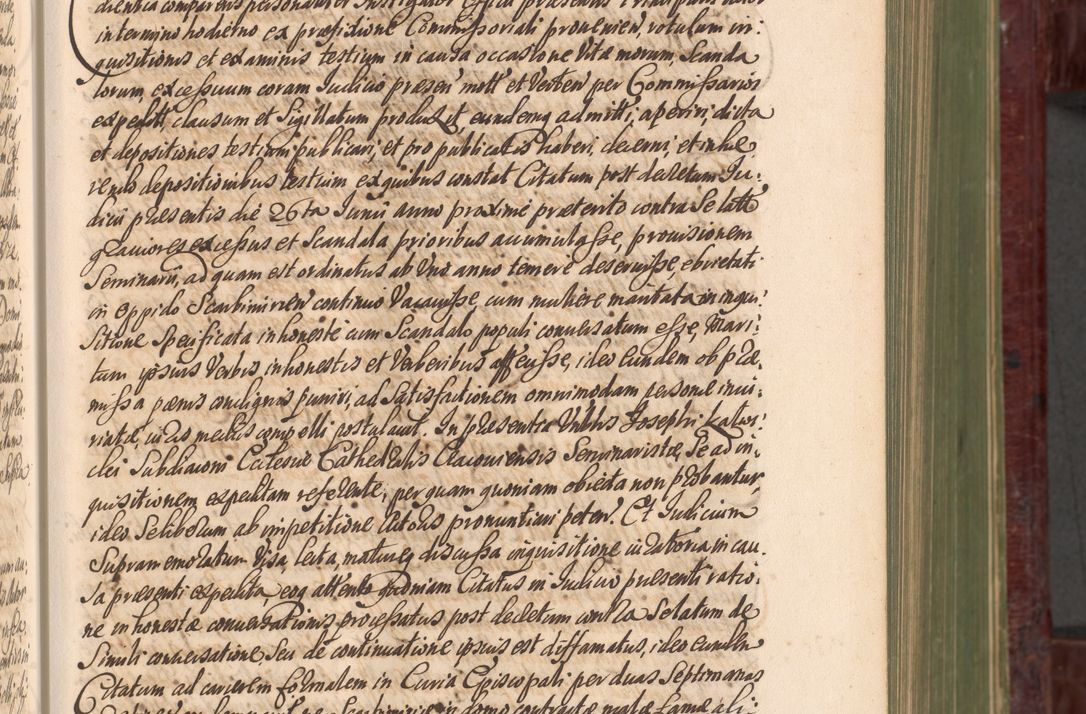 dientia comparens personaliter Instigator Officii præsentis Principalis
in termino hodierno ex præfixione Commissoriali proveniẽn, rotulum in:
quisitionis et examinis testium in causa occasione Vitæ morum, Scanda
lorum, excessuum coram Iudicio præsen̄ mott et Verten̄ per Commissarios
expedit̄, clausum et Sigillatum produxit eundemq admitti, aperiri, dicta
et depositiones testium publicari, et pro publicatis haberi, decerni, et inhæ
rendo depositionibus testium ex quibus constat Citatum post decretum Iu:
dicii præsentis die 26ta Iunii anno proxime præterito contra Se latt
graviores excessus et Scandala prioribus accumulasse, provisionem
Seminarii, ad quam est ordinatus ab Uno anno temere deseruisse, ebrietati
in oppido Scarbimirien̄ continuo Vacavisse, cum muliere maritata in inqui:
sitione Specificata inhoneste cum Scandalo populi conversatum esse, Mari:
tum ipsius Verbis inhonestis et Verberibus affecisse, ideo eundem ob præ:
missa pœnis condignis puniri, ad Satisfactionem omnimodam personæ iniu:
riatæ, iuris mediis compelli postulavit. In præsentia Vnblis Josephi
clei Subdiaconi Ecclesiæ Cathedralis Cracoviensis Seminaristæ, Se ad in:
quisitionem expeditam referente, per quam quoniam obiecta non probantur,
ideo Se liberum ab impetitione Actoris pronuntiari peten̄. Et Iudicium
Supramemoratum Visa, lecta, matureq discussa inquisitione iuratoria in cau.
sa præsenti expedita, eoq attento quoniam Citatus in Iudicio præsenti ratio:
ne inhonestæ conversationis processatus post decretum contra Se latum de
Simili conversatione, Seu de continuatione ipsius est diffamatus, ideo eundem
Citatum ad carcerem formalem in Curia Episcopali per duas Septimanas
in domo contractæ malæ famæ ali: